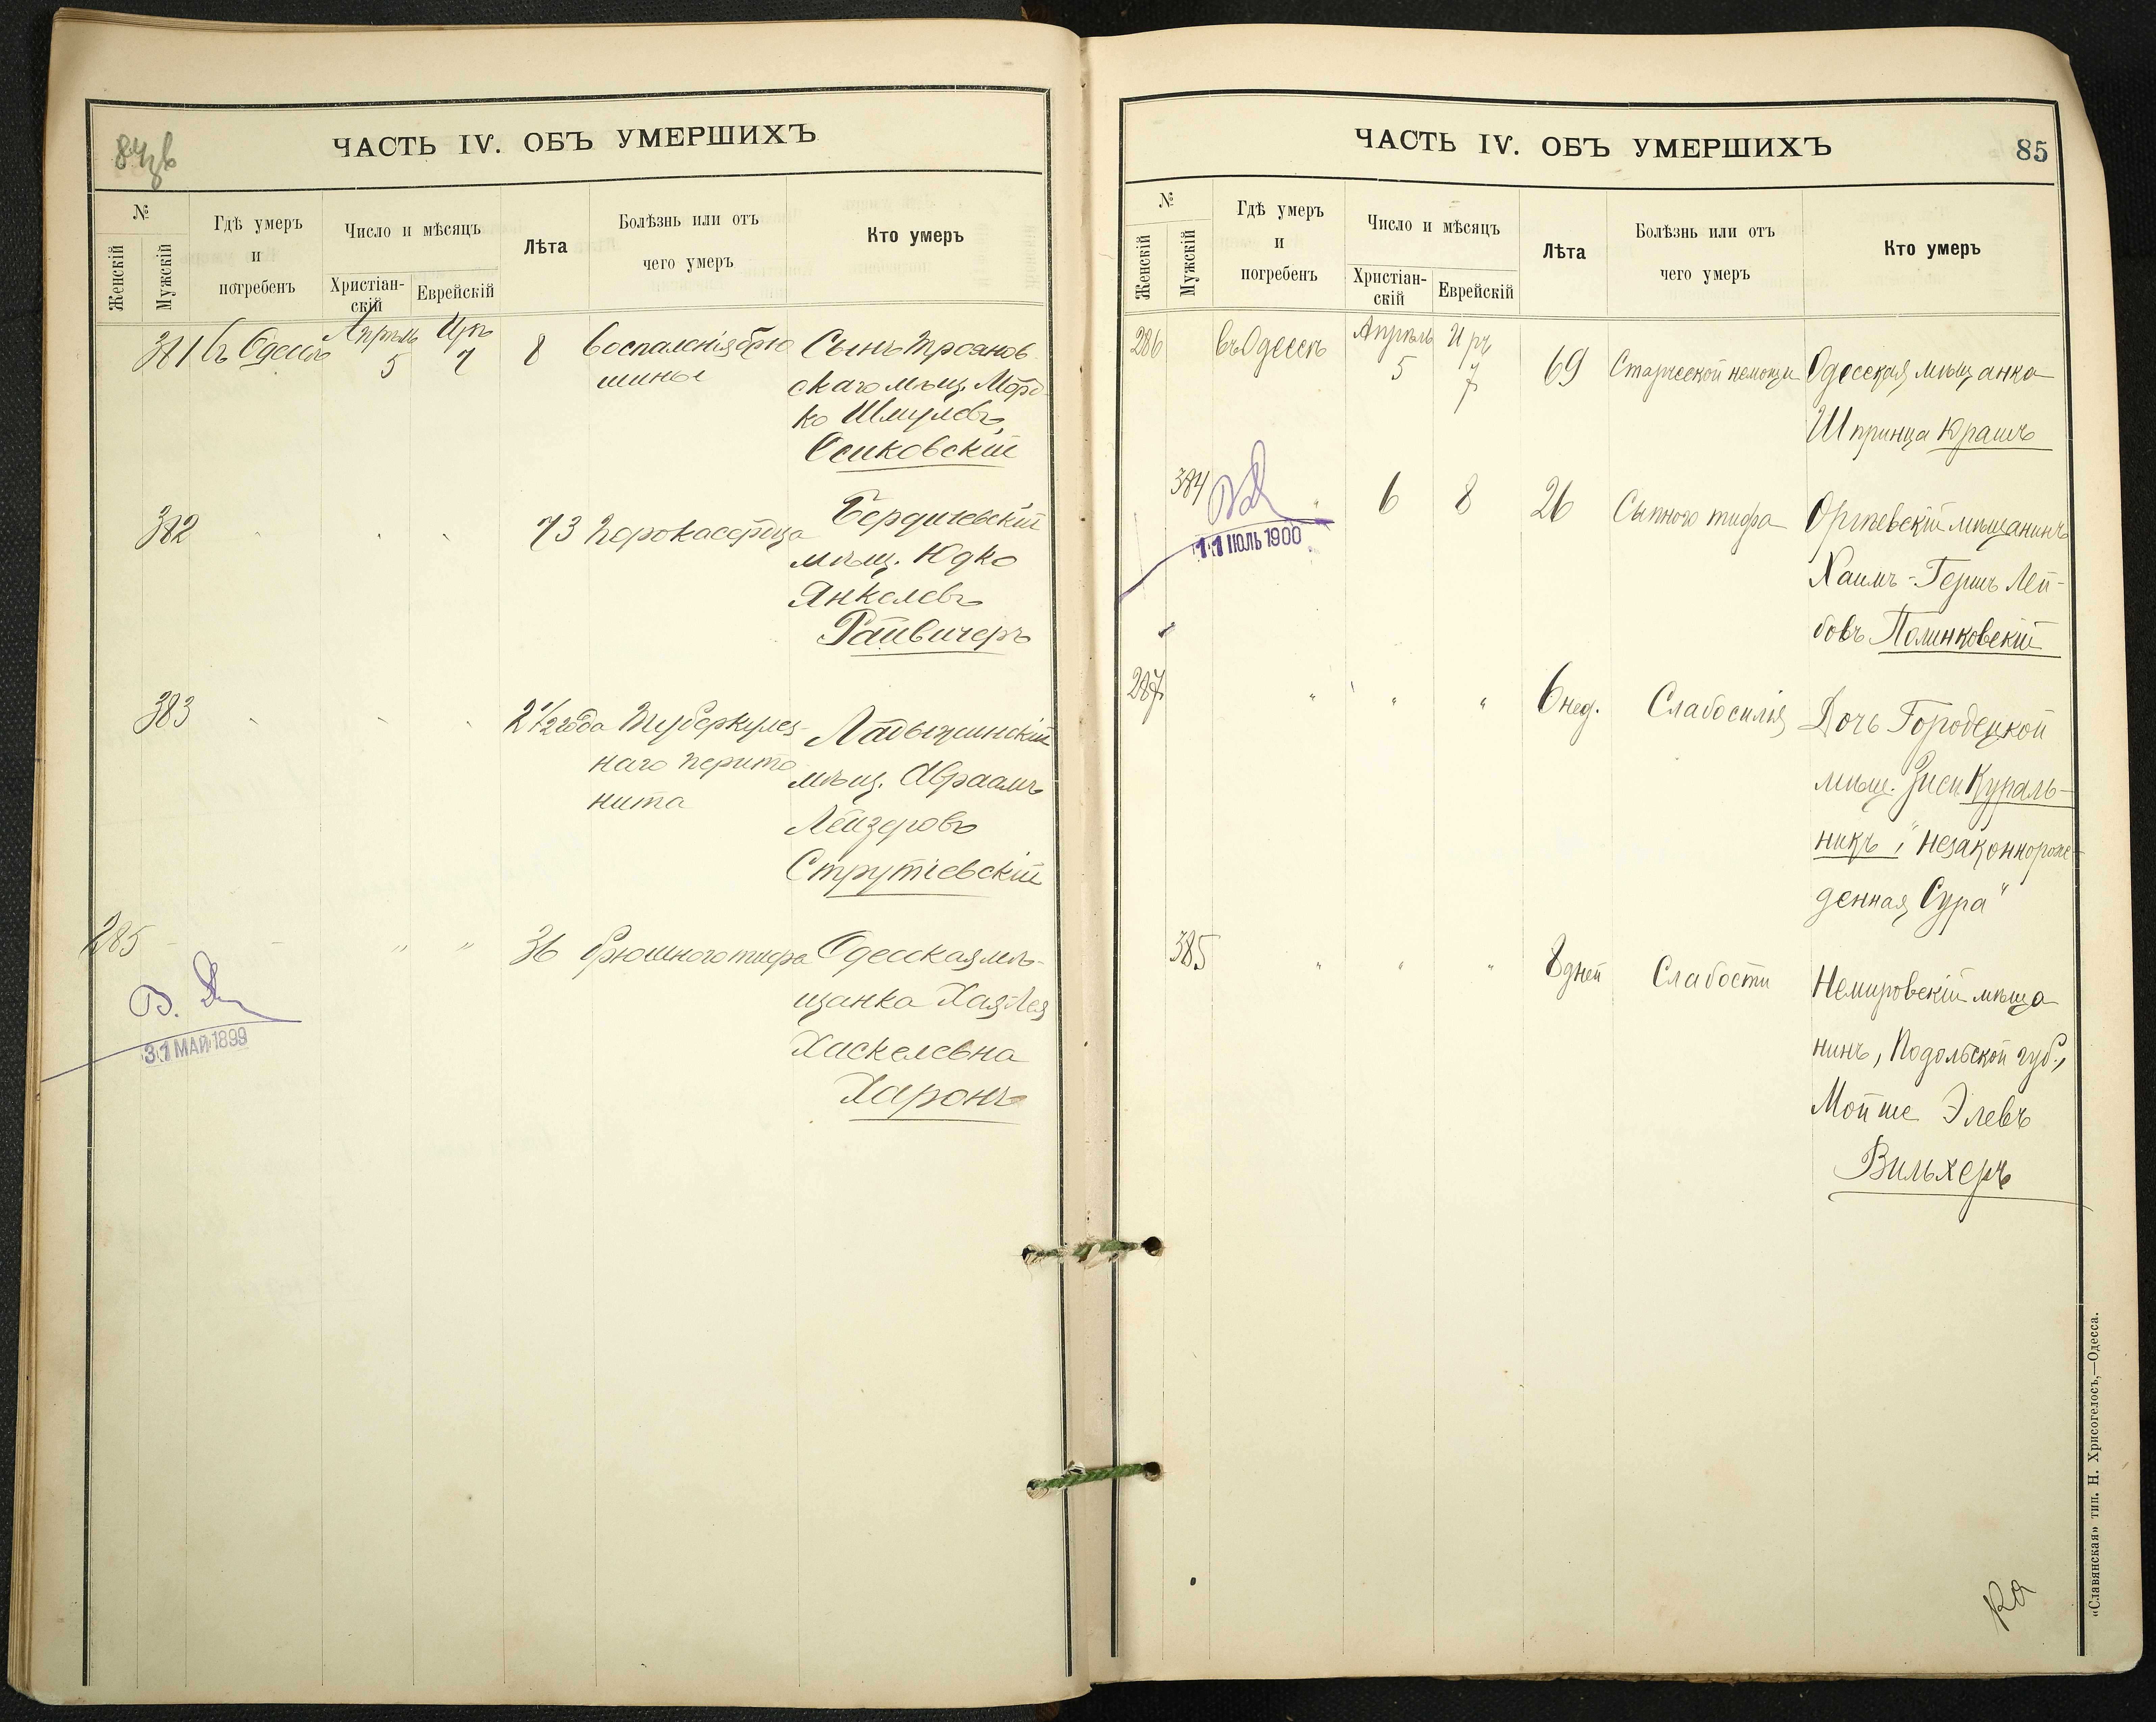 84об
ЧАСТЬ IV. ОБЪ УМЕРШИХЪ
№
Женскій
Мужскій
Гдѣ умеръ
и
погребенъ
Число и мѣсяцъ
Христіан-
скій
Еврейскій
Лѣта
Болѣзнь или отъ
чего умеръ
Кто умеръ
381 въ Одессѣ Апрѣль 5 Иръ 7 8 Воспаленія брю
шины
Сынъ Троянов
скаго мѣщ. Морд
ко Шмулевъ
Осиковскій
382 " " " 73 Порока сердца
Бердичевскій
мѣщ. Юдко
Янкелевъ
Райвичеръ
383 " " " 2 1/2 года Туберкулез-
наго перито
нита
Ладыжинскій
мѣщ. Авраамъ
Лейзеровъ
Струтіевскій
285 " " 36 Брюшного тифа
Одесская мѣ-
щанка Хая-Лея
Хаскелевна
Харонъ
31 МАЙ 1899
ЧАСТЬ IV. ОБЪ УМЕРШИХЪ
85
№
Женскій
Мужскій
Гдѣ умеръ
и
погребенъ
Число и мѣсяцъ
Христіан-
скій
Еврейскій
Лѣта
Болѣзнь или отъ
чего умеръ
Кто умеръ
286 въ Одессѣ Апрѣль 5 Иръ 7 69 Старческой немощи
Одесская мѣщанка
Шпринца Юрашъ
384 " 6 8 26 Сыпного тифа
Оргѣевскій мѣщанинъ
Хаимъ-Гершъ Лей-
бовъ Палинковскій
11 ІЮЛЬ 1900
287 " " " 6 нед. Слабосилія
Дочь Городецкой
мѣщ. Зиси Купаль-
никъ, "незаконнорож-
денная Сура"
385 " " " 8 дней Слабости
Немировскій мѣща
нинъ, Подольской губ.,
Мойше Элевъ
Вильхеръ
«Славянская» тип. Н. Хрисогелосъ,—Одесса.